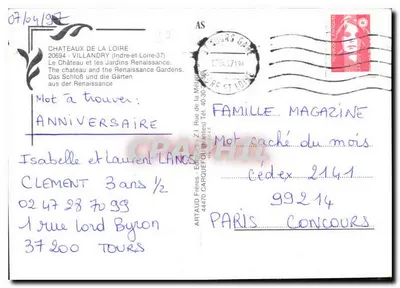 07/04/97
CHATEAUX DE LA LOIRE
20694 - VILLANDRY (Indre-et-Loire-37)
Le Château et les Jardins Renaissance.
The chateau and the Renaissance Gardens.
Das Schloß und die Gärten
aus der Renaissance
Mot à trouver:
ANNIVERSAIRE
Isabelle et Laurent
CLEMENT 3 ans 1/2
02 47 28 70 99
1 rue lord Byron
37200 TOURS
AS
ARTAUD Frères - 23, Rue de la
44470 CARQUEFOU (Nantes) Tél. 40-30
FAMILLE MAGAZINE
Mot caché du mois
Cedex 2141
99214
PARIS CONCOURS